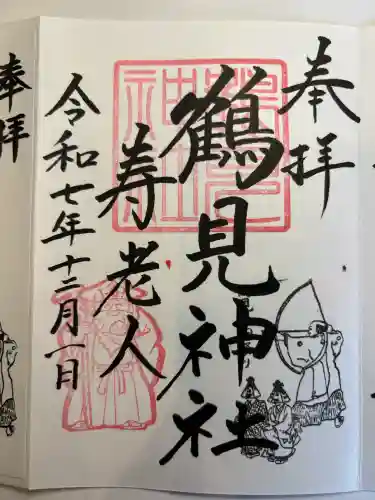 奉拝
鶴見神社
寿老人
令和七年十二月一日
奉拝